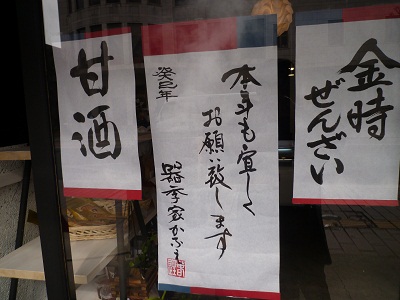 金時
ぜんざい
本年も宜しく
お願い致します
癸巳年
器季家かふぇ
甘酒